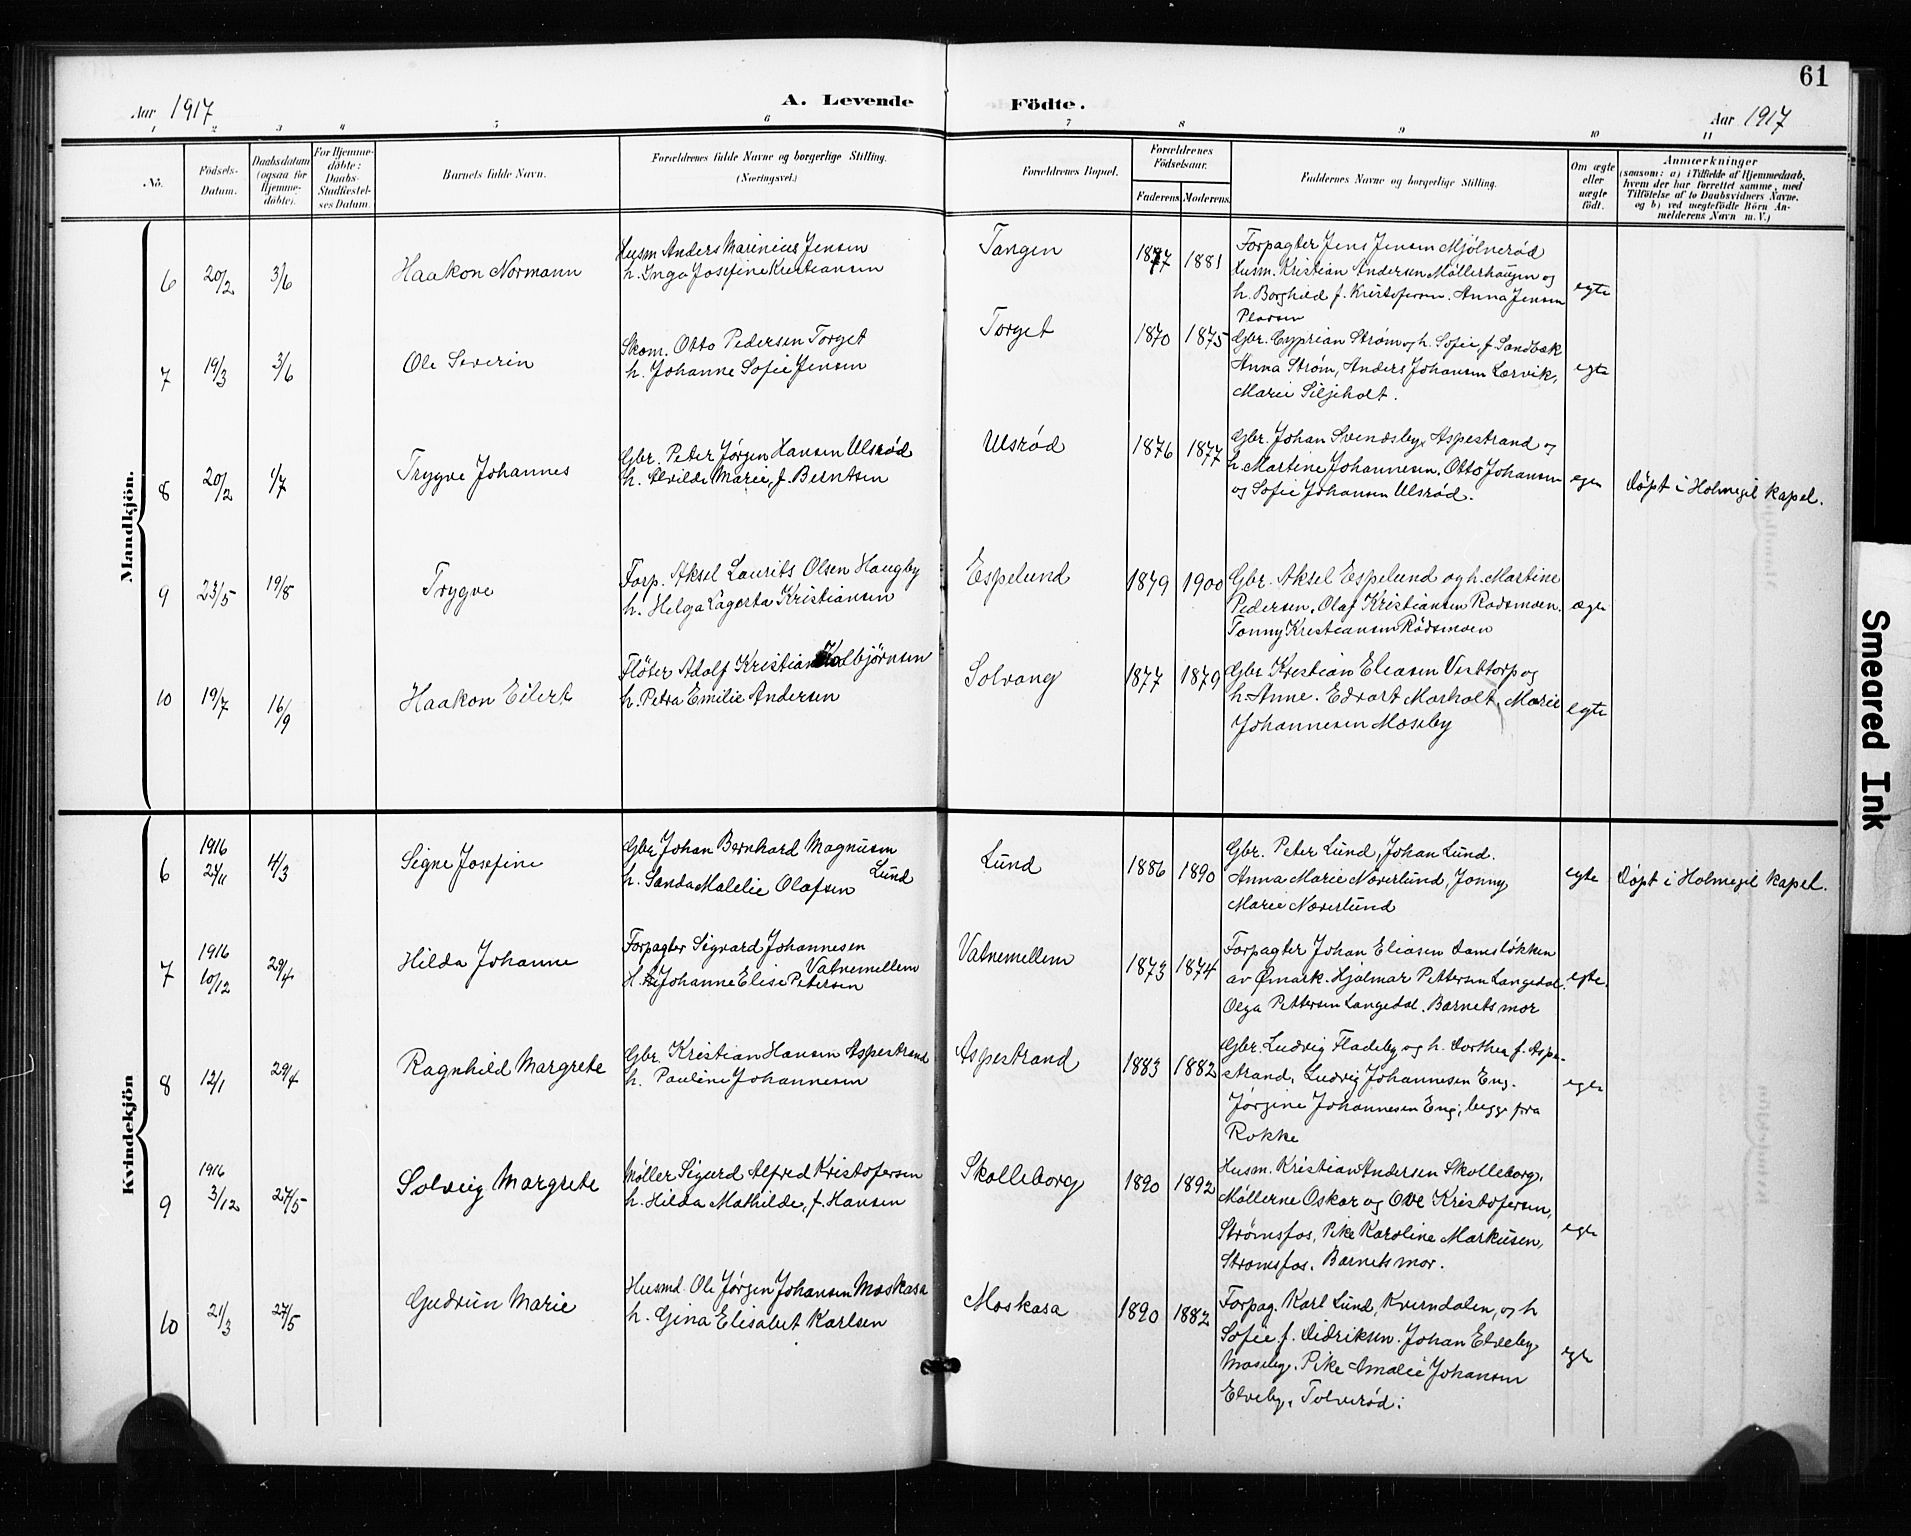 61
Aar 1917
A. Levende Födte.
Aar 1917
1 2 3 4 5 6 7 8 9 10 11
No.
Födsels-Datum.
Daabsdatum (ogsaa for Hjemme-döbte).
For Hjemme-döbte: Daabs-Stadfæstel-ses Datum.
Barnets fulde Navn.
Forældrenes fulde Navne og borgerlige Stilling. (Næringsvei.)
Forældrenes Bopæl.
Forældrenes Födselsaar.
Faderens
Moderens
Faddernes Navne og borgerlige Stilling.
Om ægte eller uægte födt.
Anmærkninger
(saasom: a) i Tilfælde af Hjemmedaab,
hvem der har forrettet samme, med
Tilföielse af to Daabsvidners Navne.
og b) ved uegtefödte Börn An-
melderens Navn m. V.)
Mandkjön.
6 20/2 3/6 Haakon Normann
Husm Anders Marinius Jensen
h. Inga Josefine Kristiansen
Tangen 1877 1881
Forpagter Jens Jensen Mjölnerød
Husm. Kristian Andersen Møllerhaugen og
h. Borghild f. Kristofersen. Anna Jensen
egte
7 19/3 3/6 Ole Severin
Skom. Otto Pedersen Torget
h. Johanne Sofie Jensen
Torget 1870 1875
Gbr. Cyprian Strøm og h. Sofie f. Sandbæk
Anna Strøm, Anders Johansen Lervik,
Marie Siljeholt.
egte
8 20/2 1/7 Trygve Johannes
Gbr. Peter Jørgen Hansen Ulsrød
h. Alvilde Marie, f. Berntsen
Ulsrød 1876 1877
Gbr. Johan Svendsby, Aspestrand og
h. Martine Johannesen. Otto Johansen
og Sofie Johansen Ulsrød.
egte
Døpt i Holmegil kapel.
9 23/5 19/8 Trygve
Forp. Aksel Laurits Olsen Haugby
h. Helga Lagerta Kristiansen
Espelund 1879 1900
Gbr. Aksel Espelund og h. Martine
Pedersen, Olaf Kristiansen Rødsmoen.
Tonny Kristiansen Rødsmoen
ægte
10 19/7 16/9 Haakon Eilert
Fløter Adolf Kristian Kolbjørnsen
h. Petra Emilie Andersen
Solvang 1877 1879
Gbr Kristian Eliasen Visttorp og
h. Anne. Edvart Morholt, Marie
Johannesen Moseby
egte
Kvindekjön
6 1916 24/11 4/3 Signe Josefine
Gbr Johan Bernhard Magnusen
Lund
h. Sanda Malelie Olafsen
Lund 1886 1890
Gbr. Peter Lund, Johan Lund.
Anna Marie Næverlund, Jonny
Marie Næverlund
egte
Døpt i Holmegil kapel.
7 1916 10/12 29/4 Hilda Johanne
Forpagter Sigvard Johannesen
Vatnemellem
H. Johanne Elise Petersen
Vatnemellem 1873 1874
Forpagter Johan Eliasen Damsløkken
av Ømark. Hjalmar Pettersen Langedal.
Olga Pettersen Langedal. Barnets mor
egte.
8 12/1 29/4 Ragnhild Margrete
Gbr. Kristian Hansen Aspestrand
h. Pauline Johannesen
Aspestrand 1883 1882
Gbr. Ludvig Fladeby og h. Dorthea f. Aspe-
strand, Ludvig Johannesen Eng.
Jørgine Johannesen Eng, begge fra
Rokke
egte
9 1916 3/12 27/5 Solveig Margrete
Møller Sigurd Alfred Kristofersen
h. Hilda Mathilde, f. Hansen
Skolleborg 1890 1892
Husm. Kristian Andersen Skolleborg,
Møllerne Oskar og Ove Kristofersen,
Strømsfos, Pike Karoline Markusen,
Strømsfos. Barnets mor.
egte
10 21/3 27/5 Gudrun Marie
Husmd. Ole Jørgen Johansen Moskasa
h. Gina Elisabet Karlsen
Moskasa 1890 1882
Forpag. Karl Lund, Kverndalen, og h
Sofie f. Didriksen. Johan Elveby
Moseby. Pike Amalie Johansen
Elveby, Tolverød.
egte
Smeared Ink